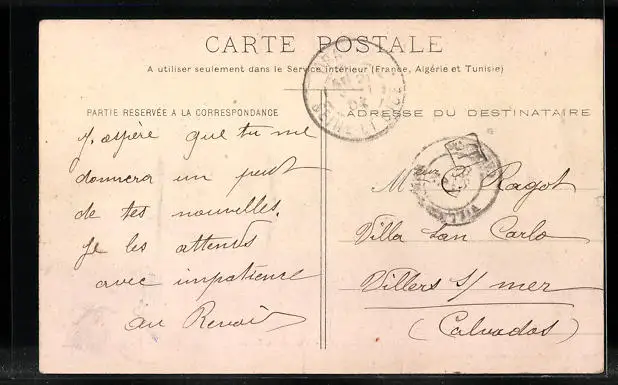 CARTE POSTALE
A utiliser seulement dans le Service intérieur (France, Algérie et Tunisie)
PARTIE RESERVÉE A LA CORRESPONDANCE
ADRESSE DU DESTINATAIRE
J'aspère que tu me
donnera un peut
de tes nouvelles.
je les attends
avec impatience
au Revoir
Ragot
Villa San Carlo
Villers s/ mer
(Calvados)
SEINE ET OISE